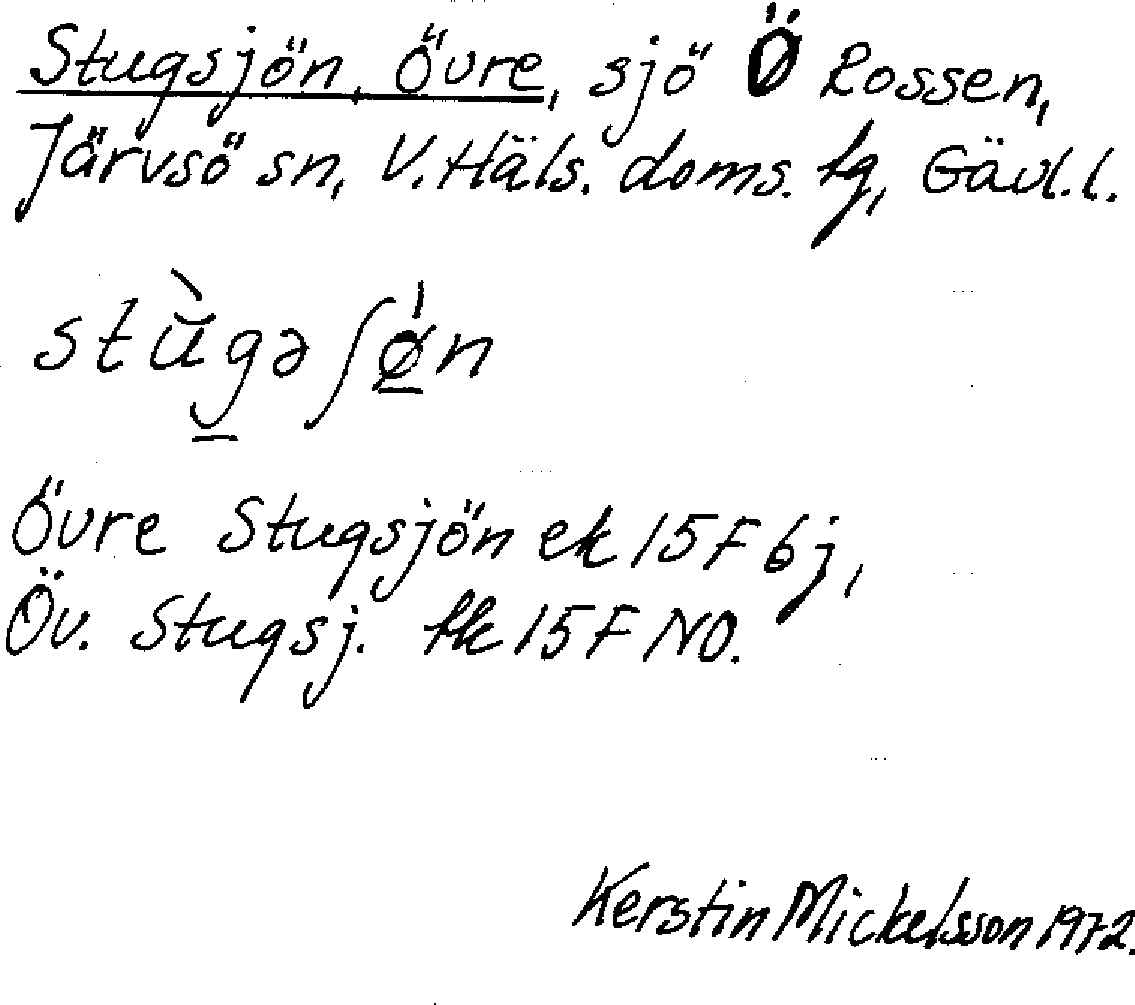 Stugsjön, Övre, sjö Ö Rossen,
Järvsö sn, V. Häls. doms. tg, Gävl. l.
stùgəʃǿ̱n
Övre Stugsjön ek 15F 6j,
Öv. Stugsj. tk 15F NO.
Kerstin Mickelsson 1972.